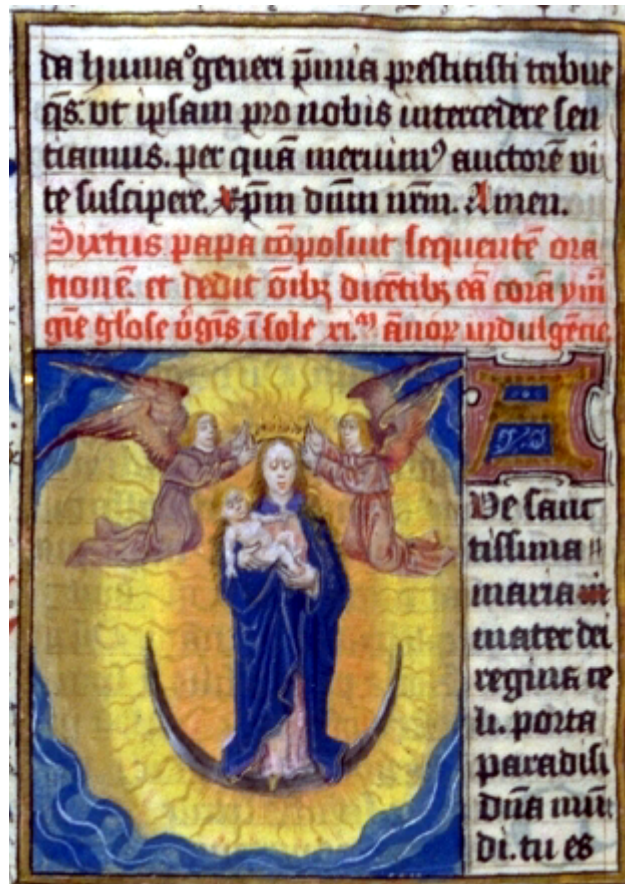 da huma⁰ generi p̄mia prestitisti tribue
q̄s. vt ipsam pro nobis intercedere sen
tiamus. per quā meruim⁹ auctorē vi
te suscipere. xp̄m dn̄m nr̄m. Amen.
Sixtus papa cōposuit sequentē ora
tionē. et dedit ōibꝫ dicētibꝫ eā corā
glose v̄gīs ī sole xi.ᵐ ānoꝝ indulgēcie
A
Ve sanc
tissima
maria
mater dei
regina ce
li. porta
paradisi
dn̄a mun
di. tu es